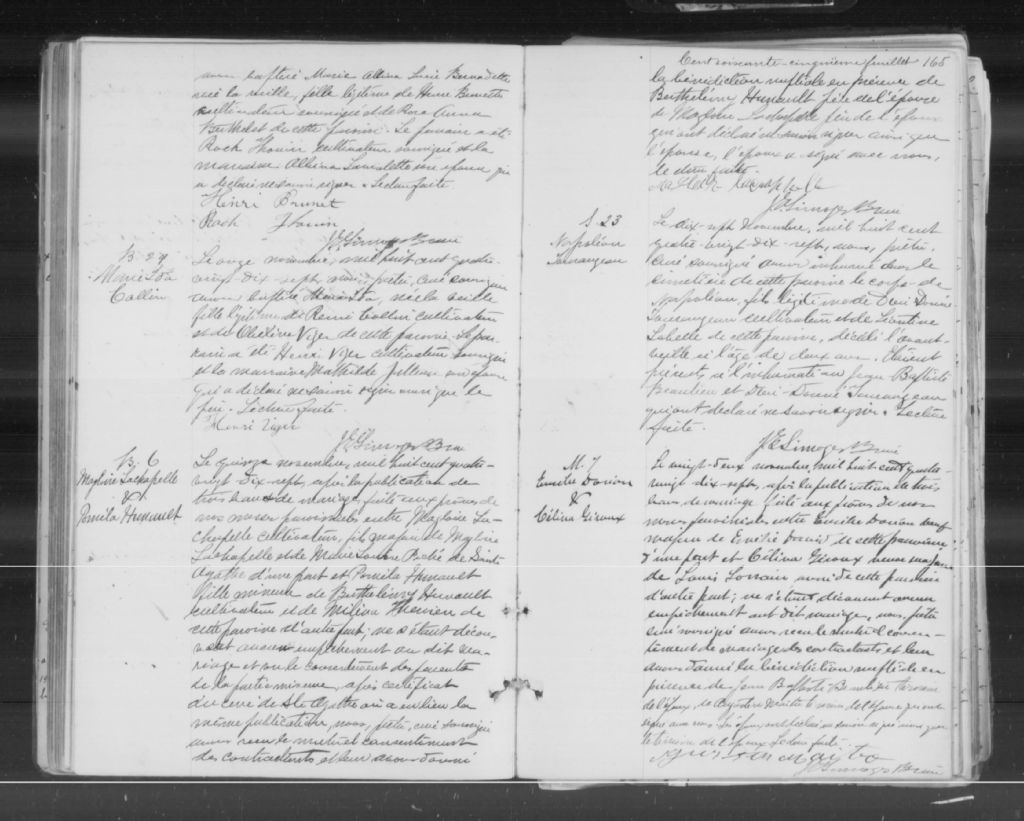 avons baptisé Marie Albina Lucie Bernadette
née la veille, fille légitime de Henri Brunette
cultivateur soussigné et de Rose Anna
Berthelet de cette paroisse. Le parrain a été
Rock Thouin cultivateur soussigné et la
marraine Albina son épouse qui
a déclaré ne savoir signer. Lecture faite
Henri Brunet
Rock Thouin
J.E. Limoges Ptre curé
B. 29
Marie
Collin
Le onze novembre, mil huit cent quatre-
vingt-dix-sept, nous prêtre, curé soussigné
avons baptisé, née la veille
fille légitime de Rémi Collin cultivateur
et de Viger de cette paroisse. Le par-
rain a été Henri Viger cultivateur soussigné
et la marraine Mathilde son épouse
qui a déclaré ne savoir signer ainsi que le
père. Lecture faite.
Henri Viger
J.E. Limoges Ptre curé
M. 6
Magloire Lachapelle
&
Hunault
Le quinze novembre, mil huit cent quatre-
vingt-dix-sept, après la publication de
trois bans de mariage faite aux prônes de
nos messes paroissiales entre Magloire La-
chapelle cultivateur, fils majeur de Magloire
Lachapelle et de Marie Louise de Sainte
Agathe d'une part et Hunault
fille mineure de Barthélemy Hunault
cultivateur et de Therrien de
cette paroisse d'autre part; ne s'étant décou-
vert aucun empêchement au dit ma-
riage et vu le consentement des parents
de la partie mineure, après certificat
du curé de Ste Agathe où a eu lieu la
même publication, nous, prêtre, curé soussigné
avons reçu le mutuel consentement
des contractants et leur avons donné
Cent soixante-cinquième feuillet 165
la bénédiction nuptiale en présence de
Barthélemy Hunault père de l'épouse
de Lachapelle père de l'époux
qui ont déclaré ne savoir signer ainsi que
l'épouse, l'époux a signé avec nous,
lecture faite.
Lachapelle
J.E. Limoges Ptre curé
S. 23
Napoléon
Lamargeau
Le dix-sept novembre, mil huit cent
quatre-vingt-dix-sept, nous, prêtre,
curé soussigné avons inhumé dans le
cimetière de cette paroisse le corps de
Napoléon, fils légitime de Dieu Donné
cultivateur et de
Labelle de cette paroisse, décédé l'avant-
veille à l'âge de deux ans. Étaient
présents à l'inhumation Jean Baptiste
Beaulieu et Dieu-Donné
qui ont déclaré ne savoir signer. Lecture
faite.
J.E. Limoges Ptre curé
M. 7
Donon
&
Célina Giroux
Le vingt-deux novembre, mil huit cent quatre-
vingt-dix-sept, après la publication de trois
bans de mariage faite aux prônes de nos
messes paroissiales entre Donon veuf
majeur de Emélie de cette paroisse
d'une part et Célina Giroux veuve majeure
de Louis Lorrain aussi de cette paroisse
d'autre part; ne s'étant découvert aucun
empêchement au dit mariage, nous, prêtre
curé soussigné avons reçu le mutuel consen-
tement de mariage des contractants et leur
avons donné la bénédiction nuptiale en
présence de Jean Baptiste témoin
de l'époux, de témoin de l'épouse qui ont
signé avec nous. Les époux ont déclaré ne savoir signer ainsi que
le témoin de l'époux. Lecture faite.
J.E. Limoges Ptre curé